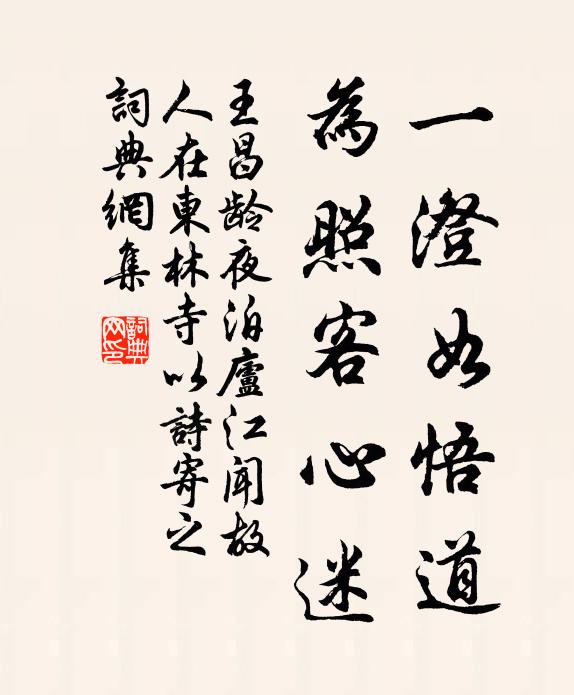 一澄如悟道
為照客心迷
王昌龄夜泊廬江闻故
人在東林寺以詩寄之
詞典網集
詞典
网印